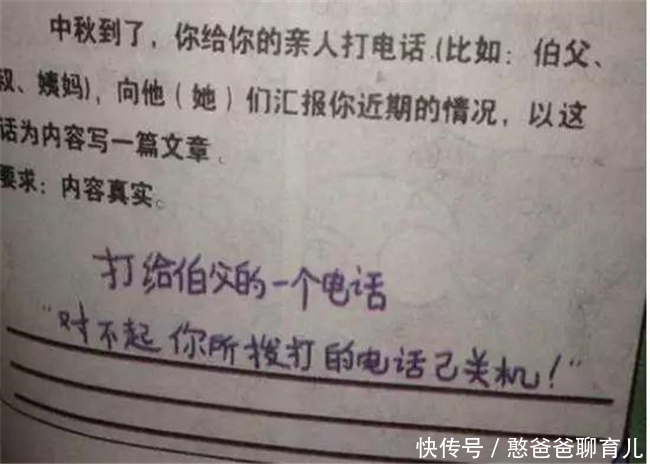 中秋到了，你给你的亲人打电话(比如：伯父、
叔、姨妈)，向他（她）们汇报你近期的情况，以这
话为内容写一篇文章。
要求：内容真实。
打给伯父的一个电话
“对不起你所拨打的电话已关机！”
快传号／憨爸爸聊育儿